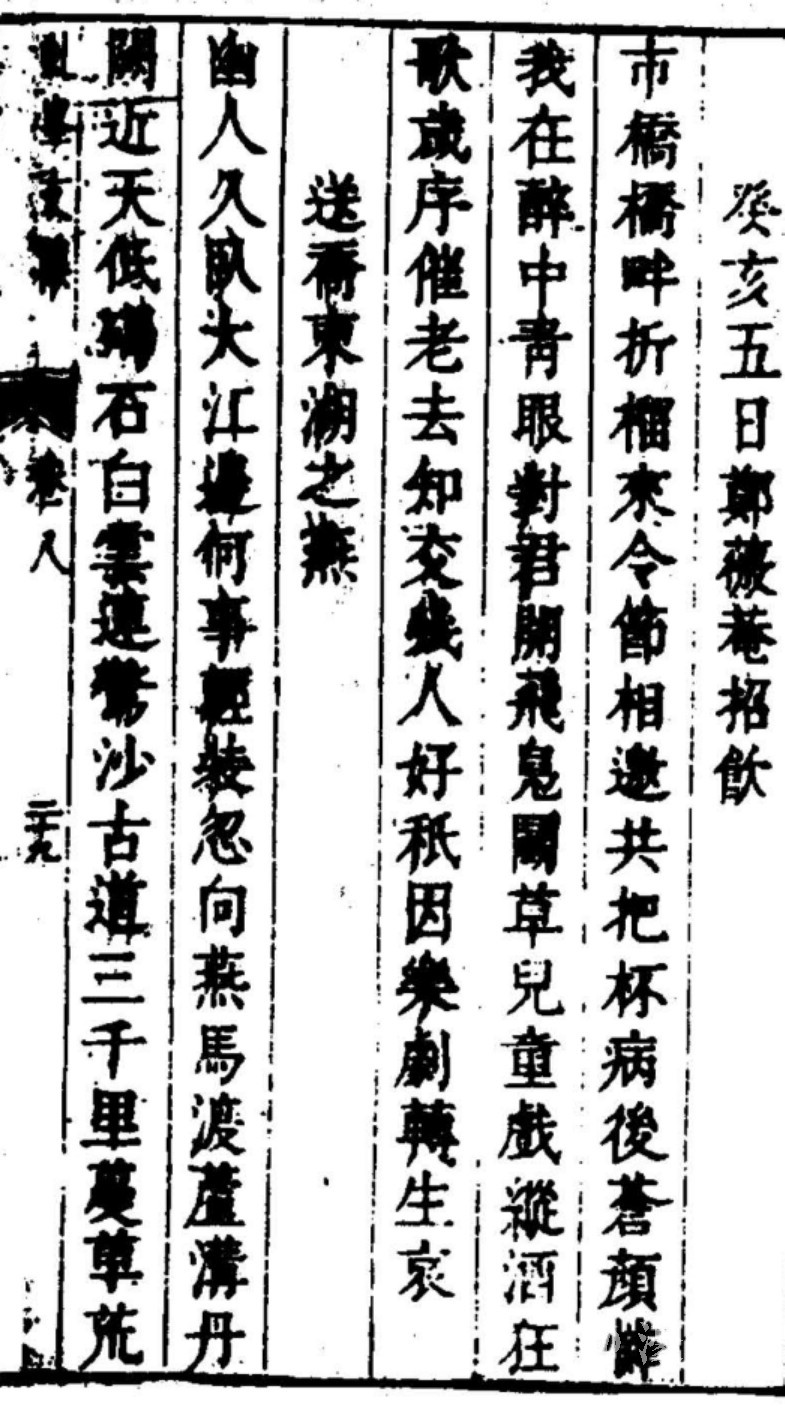 癸亥五日鄭薇菴招飲
市橋橋畔折榴來令節相邀共把杯病後蒼顏辭
我在醉中青眼對君開飛鳧鬭草兒童戲縱酒狂
歌歲序催老去知交幾人好秖因樂劇轉生哀
送喬東湖之燕
幽人久臥大江邊何事輕裝忽向燕馬渡蘆溝丹
闕近天低碣石白雲連驚沙古道三千里蔓草荒
卷八
二十九